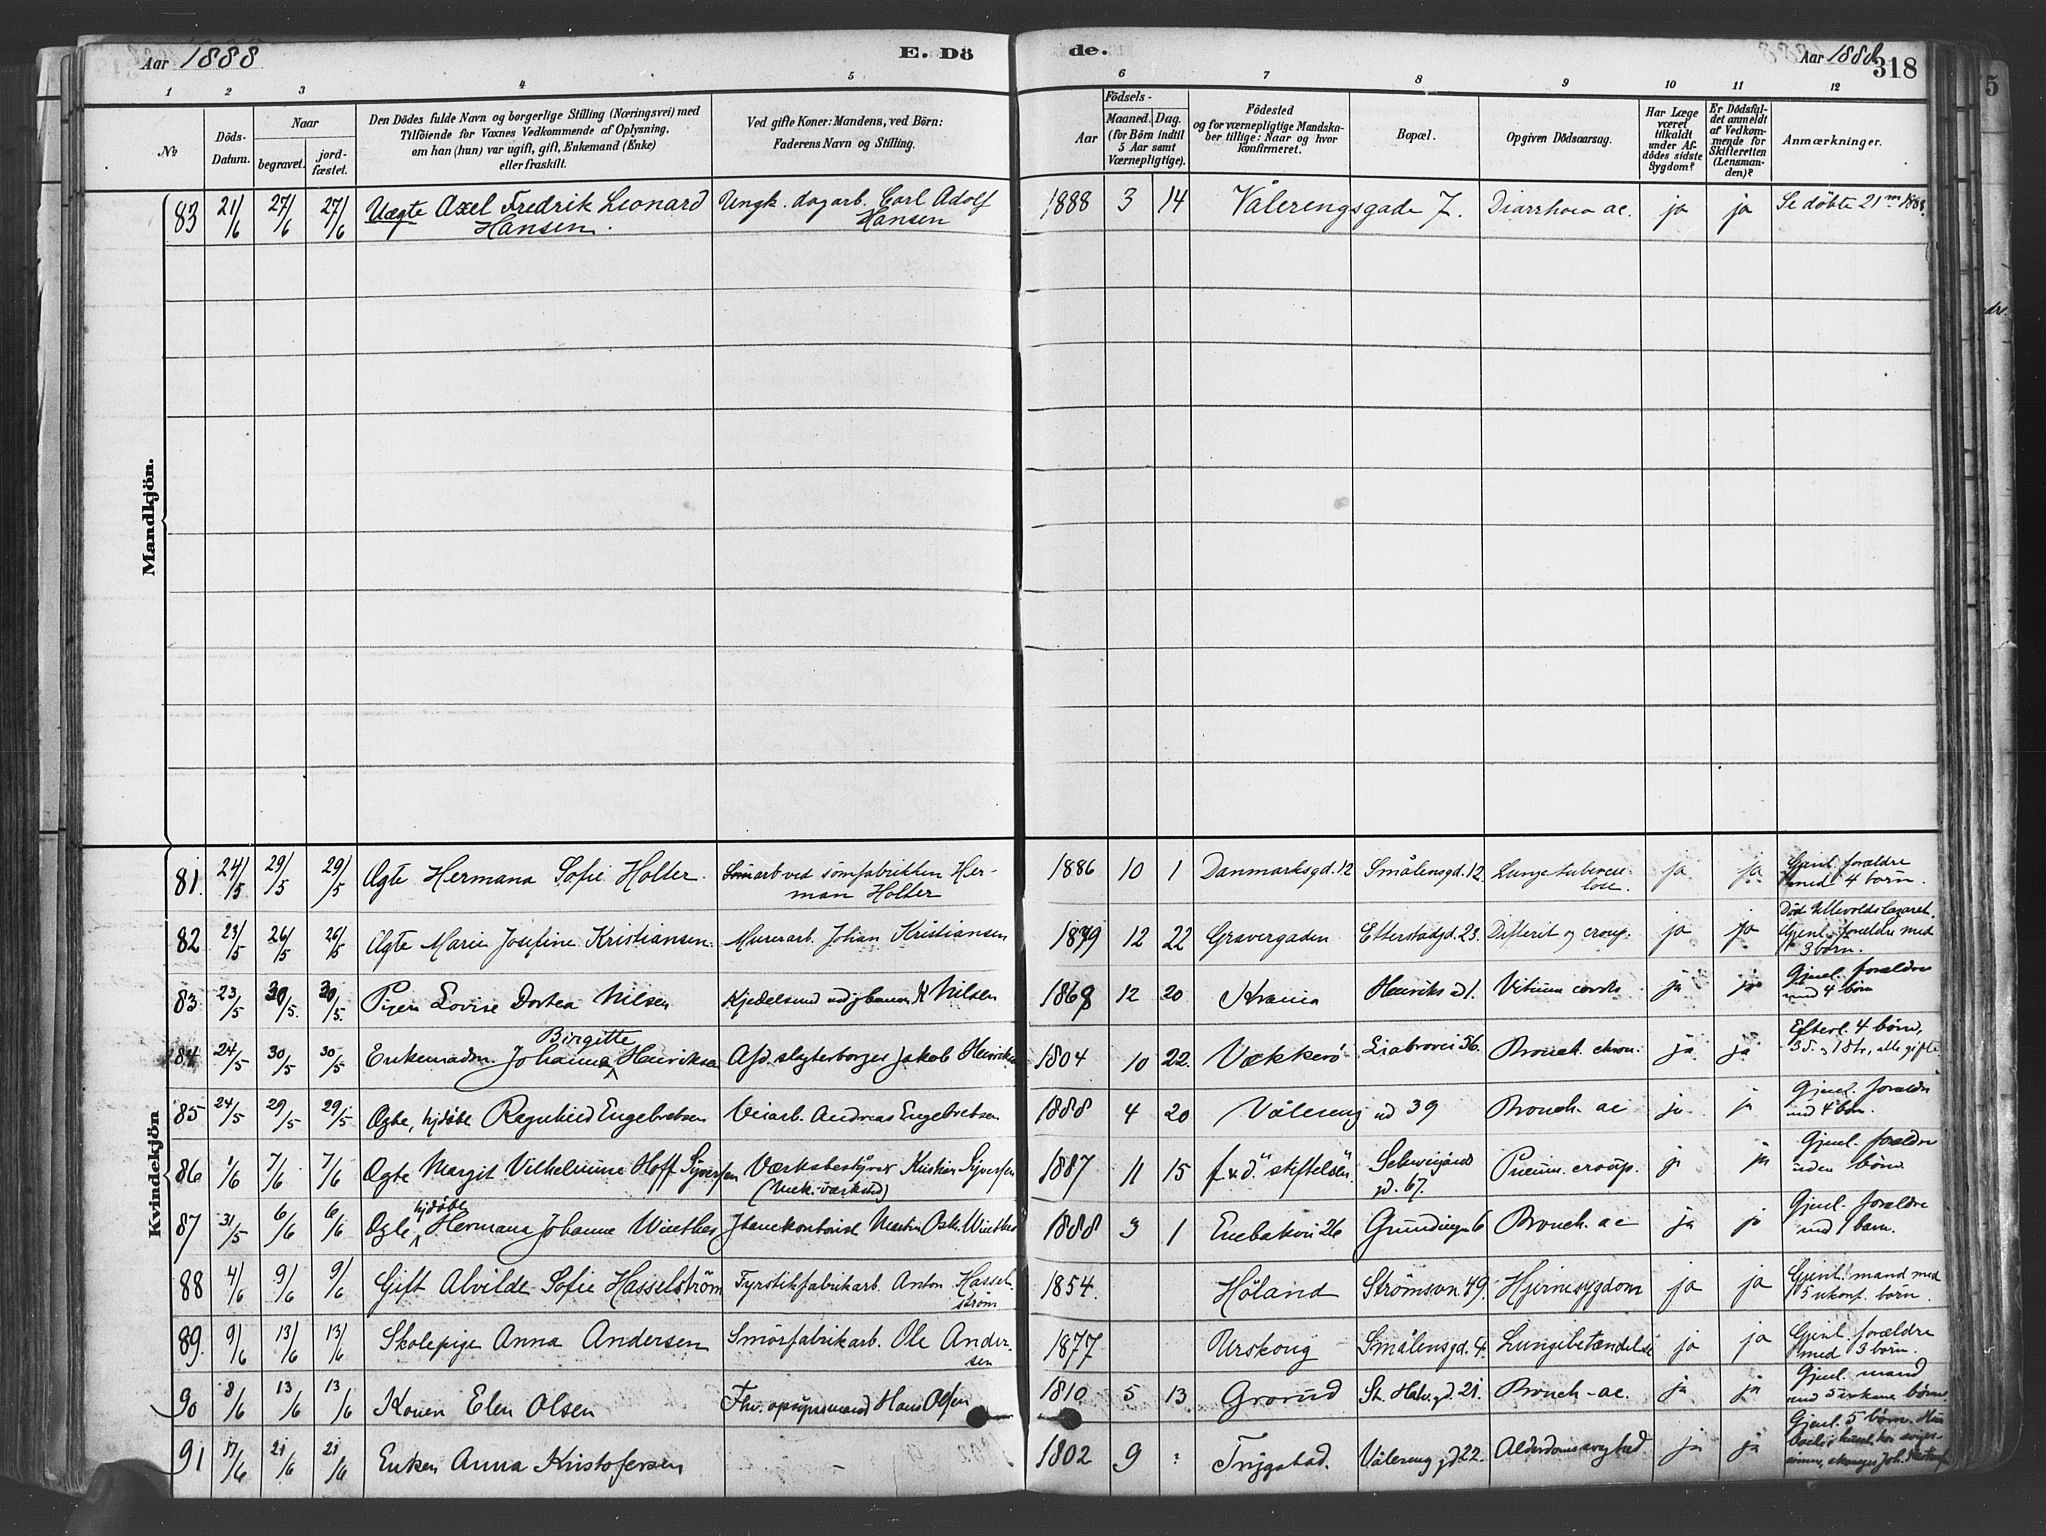 Aar 1888 E. Dö de. Aar 1888 318
1 2 3 4 5 6 7 8 9 10 11 12
№ Döds-Datum. Naar begravet. jord-fæstet. Den Dödes fulde Navn og borgerlige Stilling (Næringsvei) med Tilföiende for Voxnes Vedkommende af Oplysning, om han (hun) var ugift, gift, Enkemand (Enke) eller fraskilt. Ved gifte Koner: Mandens, ved Börn: Faderens Navn og Stilling. Födsels- Aar Maaned. Dag. (for Börn indtil 5 Aar samt Værnepligtige). Födested og for værnepligtige Mandskaber tillige: Naar og hvor konfirmeret. Bopæl. Opgiven Dödsaarsag. Har Læge været tilkaldt under Afdödes sidste Sygdom? Er Dödsfaldet anmeldt af Vedkommende for Skifteretten (Lensmanden)? Anmærkninger.
Mandkjön.
83 21/6 27/6 27/6 Uægte Axel Fredrik Leonard Hansen. Ungk. dagarb. Carl Adolf Hansen 1888 3 14 Vålerengsgade 7. Diarrhoea ac. ja ja Se døbte 21 1888.
Kvindekjön
81. 24/5 29/5 29/5 Ægte Hermana Sofie Holter. Sömarb ved sömfabrikken Herman Holter 1886 10 1 Danmarksgd. 12 Smålensgd. 12. Lungetuberculose. ja ja Gjenl. forældre med 4 børn.
82 23/5 26/5 26/5 Ægte Marie Josefine Kristiansen. Murerarb. Johan Kristiansen 1879 12 22 Gravergaden Etterstadgd. 23. Difterit og croup. ja ja Død Ullevolds lazaret. Gjenl. forældre med 3 børn.
83 23/5 30/5. 30/5. Pigen Lovise Dortea Nilsen Kjedelsmed Nilsen 1868 12 20 Krania 1. Vitium cordis ja ja Gjenl. forældre med 4 børn
84 24/5 30/5 30/5 Enkemadm. Johanna Birgitte Henriksen Afd. slagterborger Jakob Henriksen 1804 10 22. Vækkerö Liabrovei 56. Bronch. chron. ja ja Efterl. 4 børn, 3 S. 1 Dtr., alle gifte
85 24/5 29/5 29/5 Ægte, hjdøbt Ragnhild Engebretsen Veiarb. Andreas Engebretsen 1888 4 20 Vålereng 39 Bronch. ac ja ja Gjenl. forældre med 4 børn.
86 1/6 7/6 7/6 Ægte Margit Vilhelmine Hoff Syversen Værksbestyrer Kristian Syversen 1887 11 15 "stiftelsen" Schweigaards gd. 67. Pneum. croup. ja ja Gjenl. forældre uden børn
87 31/5 6/6 6/6 Ægte hjdøbt Hermana Johanne Martin 1888 3 1 Enebakvei 26 6 Bronch. ac ja ja Gjenl. forældre med 1 barn.
88 4/6 9/6 9/6 Gift Alvilde Sofie Hasselström Fyrstikfabrikarb. Anton Hasselström 1854. Höland Strömsvn. 49. Hjernesygdom ja ja Gjenl. mand med 5 ukonf. børn.
89. 9/6 13/6 13/6 Skolepige Anna Andersen Smörfabrikarb. Ole Andersen 1877 Urskoug Smålensgd. 4. Lungebetændelse ja ja Gjenl. forældre med 3 børn.
90 8/6 13/6 13/6 Konen Elen Olsen Fhv. opsynsmand Hans Olsen 1810 5 13 Grorud St. Halv. gd. 21. Bronch. ac. ja ja Gjenl. mand med 5 voksne børn
91 17/6 21/6 21/6 Enken Anna Kristofersen - 1802 9 : Trygstad. Vålereng gd 22. Alderdomssvaghed ja ja Gjenl. 5 børn.